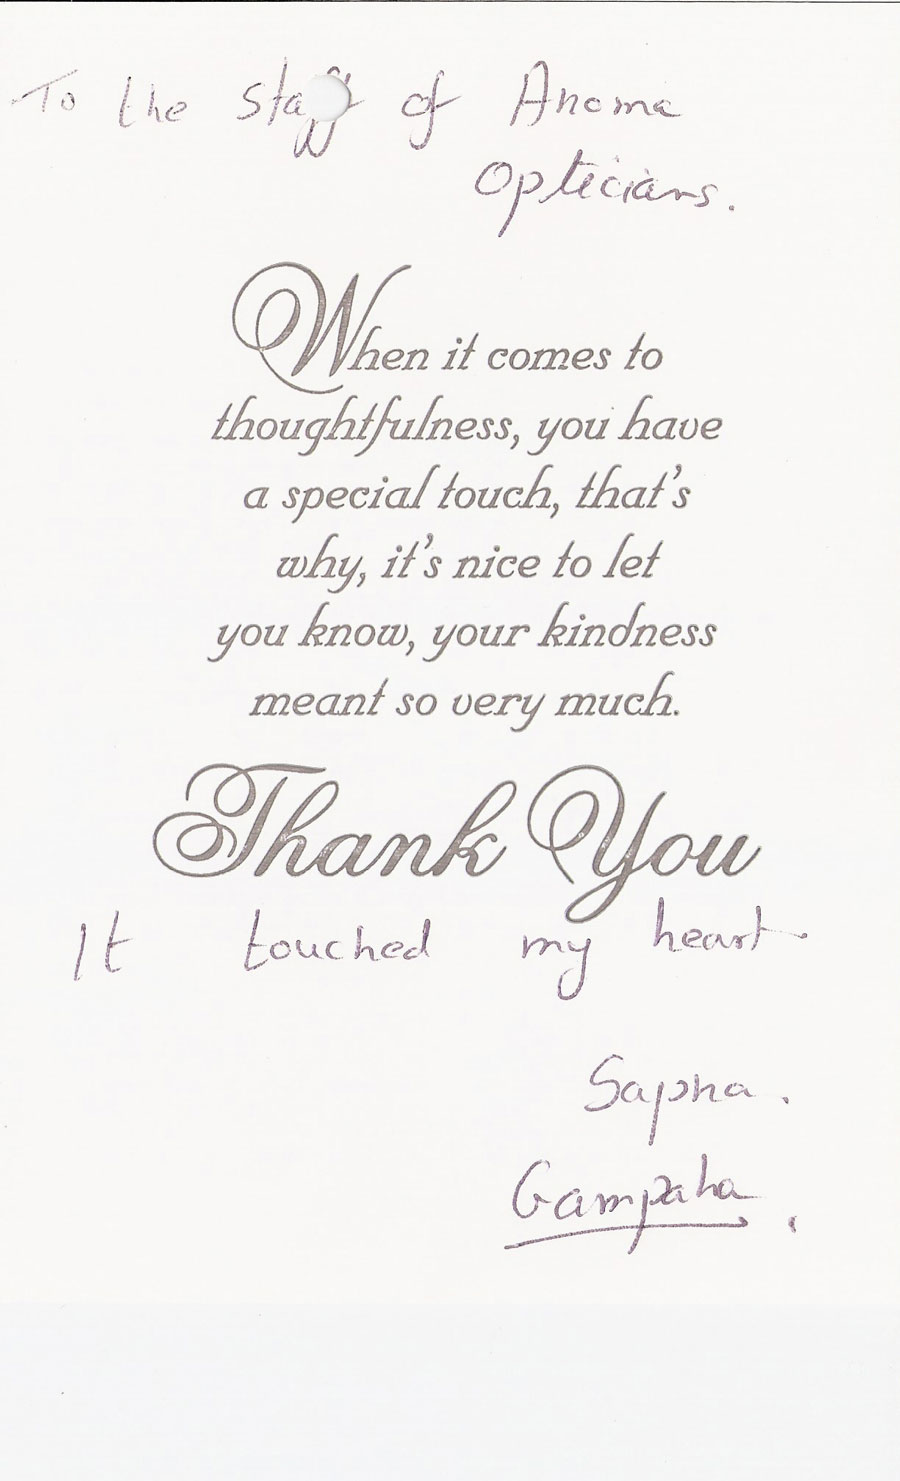 To the staff of Anoma
Opticians.
When it comes to
thoughtfulness, you have
a special touch, that's
why, it's nice to let
you know, your kindness
meant so very much.
Thank You
It touched my heart
Sapna.
Gampaha.